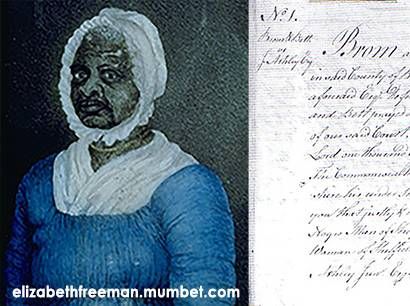 No. 1.
Brom & Bett
vs
J. Ashley Esq
Brom a
in said County of
aforesaid Esqr
and Bett prayed
of our said Court
Lord one thousand
The Commonwealth
his under
you that justly &
Negro Man of
Woman of
Ashley Junr Esq
elizabethfreeman.mumbet.com